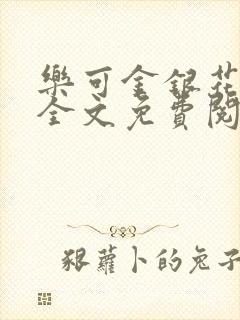 樂可金銀花
全文免費閱
狠蘿卜的兔子